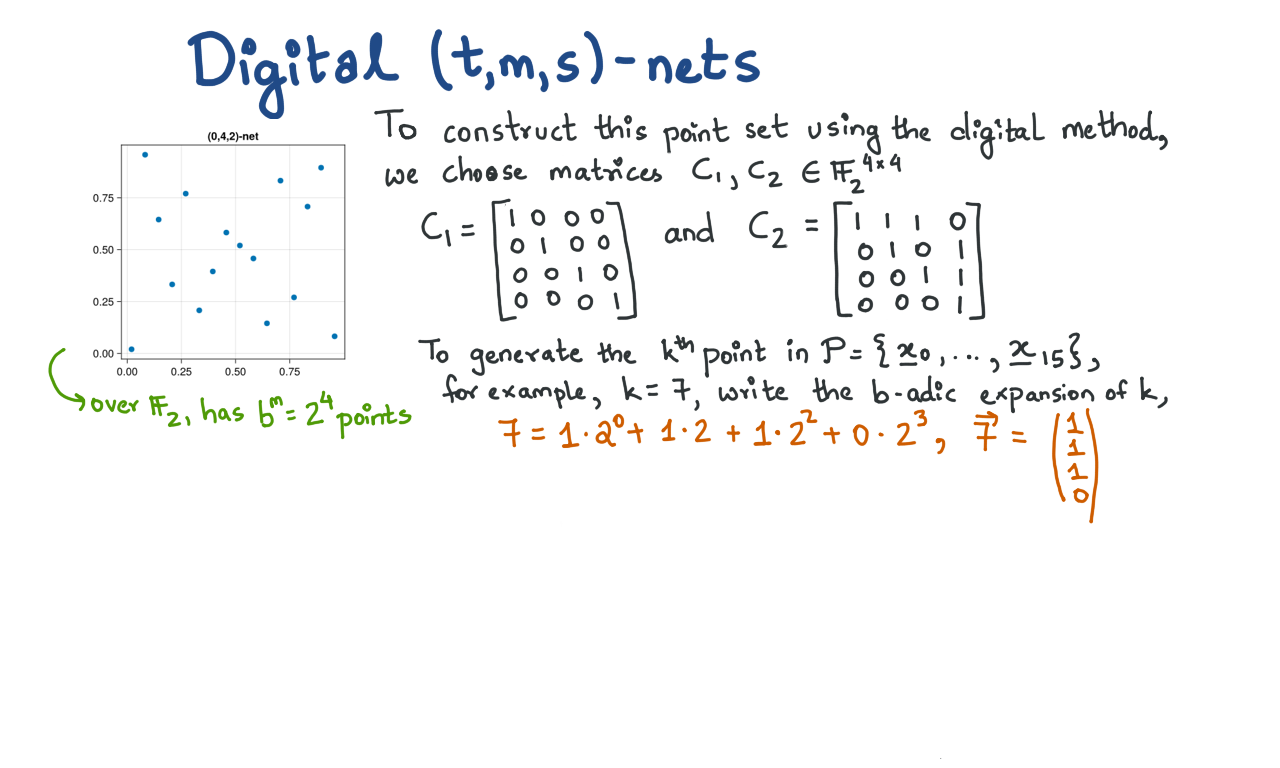 Digital (t,m,s)-nets
(0,4,2)-net
0.75
0.50
0.25
0.00
0.00 0.25 0.50 0.75
over 𝔽₂, has bᵐ = 2⁴ points
To construct this point set using the digital method,
we choose matrices C₁, C₂ ∈ 𝔽₂⁴ˣ⁴
C₁ = [1 0 0 0; 0 1 0 0; 0 0 1 0; 0 0 0 1] and C₂ = [1 1 1 0; 0 1 0 1; 0 0 1 1; 0 0 0 1]
To generate the kᵗʰ point in P = {x₀, ..., x₁₅},
for example, k = 7, write the b-adic expansion of k,
7 = 1·2⁰ + 1·2 + 1·2² + 0·2³, 7⃗ = (1 1 1 0)